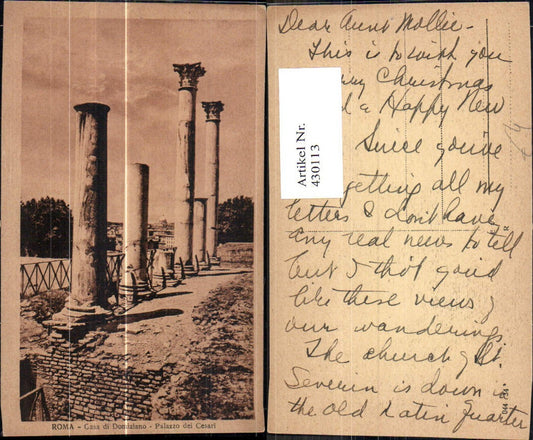 ROMA - Casa di Domiziano - Palazzo dei Cesari
Dear Aunt Mollie -
This is to wish you
Christmas
& a Happy New
Since you've
getting all my
letters I don't have
any real news to tell
but I tho't you'd
like these views of
our wanderings.
The church of St.
Severin is down in
the old Latin Quarter
Artikel Nr.
430113